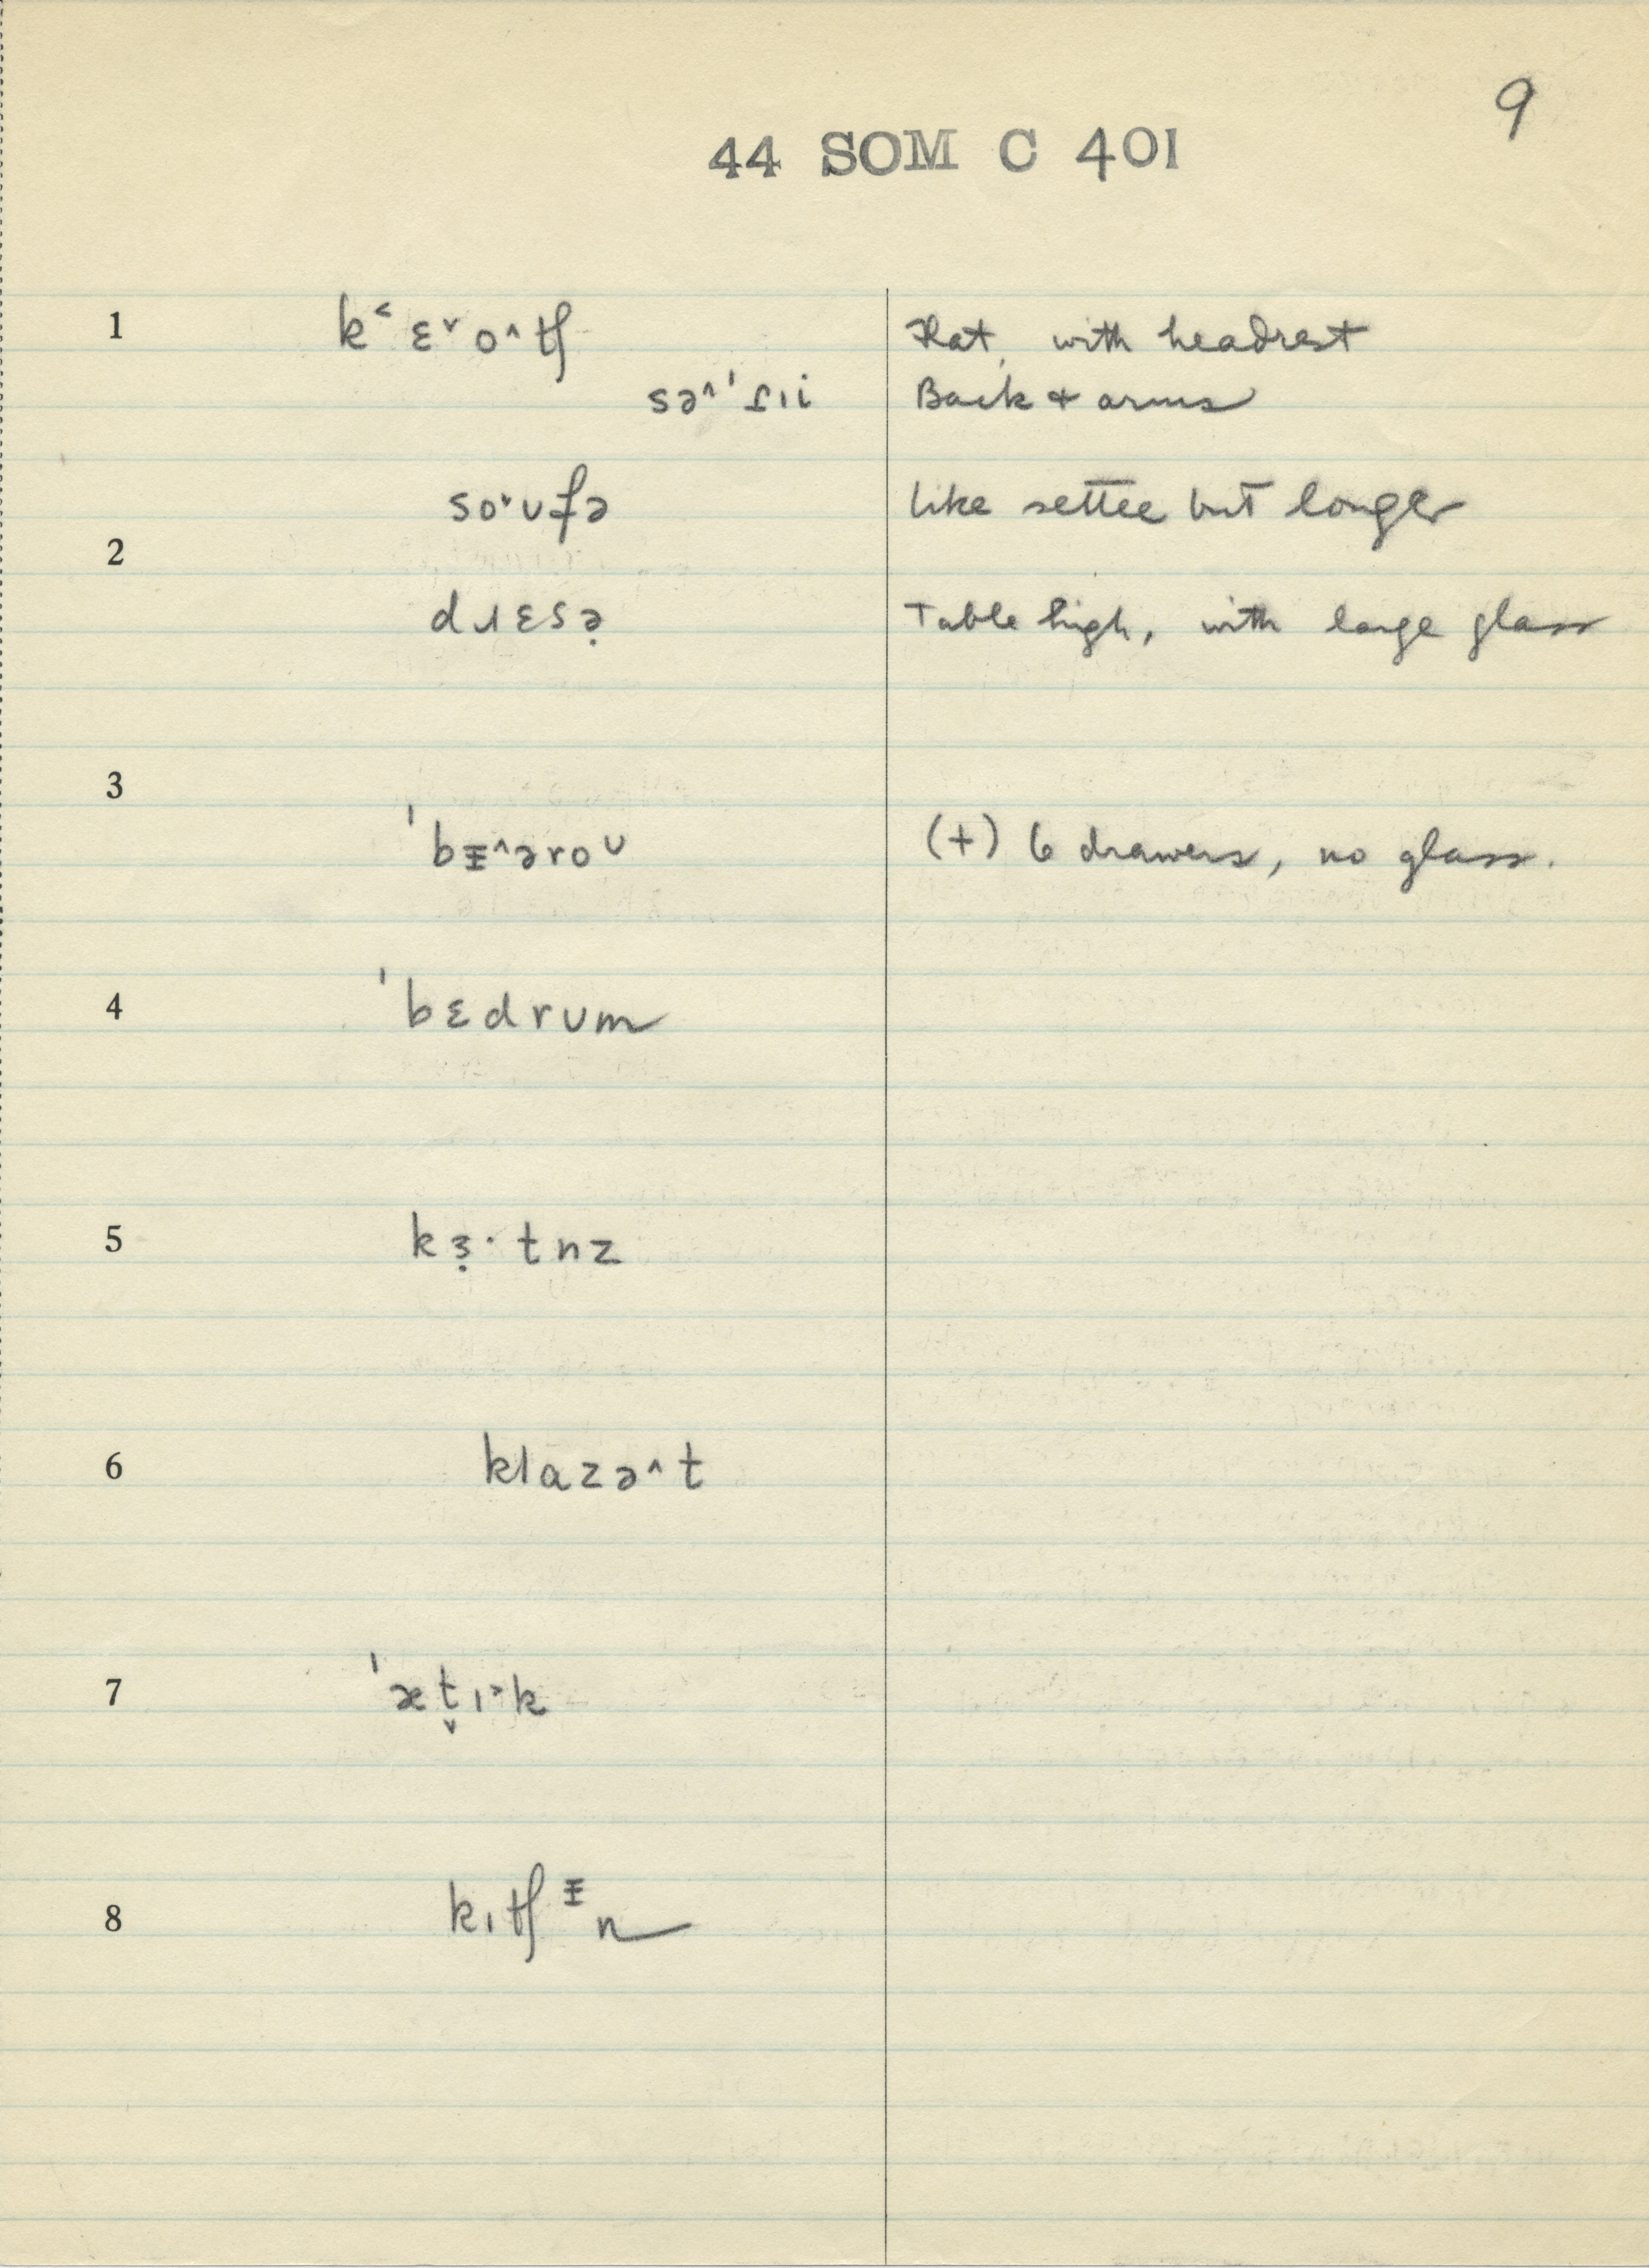 9
44 SOM C 401
1 k˂ ɛ˅ o˄ tʃ Flat, with headrest
sə˄ˈɾɪi Back & arms
so˅ʊfə like settee but longer
2
dɹɛsə̣ Table high, with large glass
3
ˈbᵻ˄əroᴜ (+) 6 drawers, no glass.
4 ˈbɛdrum
5 kɜ̣· tnz
6 klɑzə˄t
7 ˈæt̬ɪ˃k
8 kɪtʃᵻn